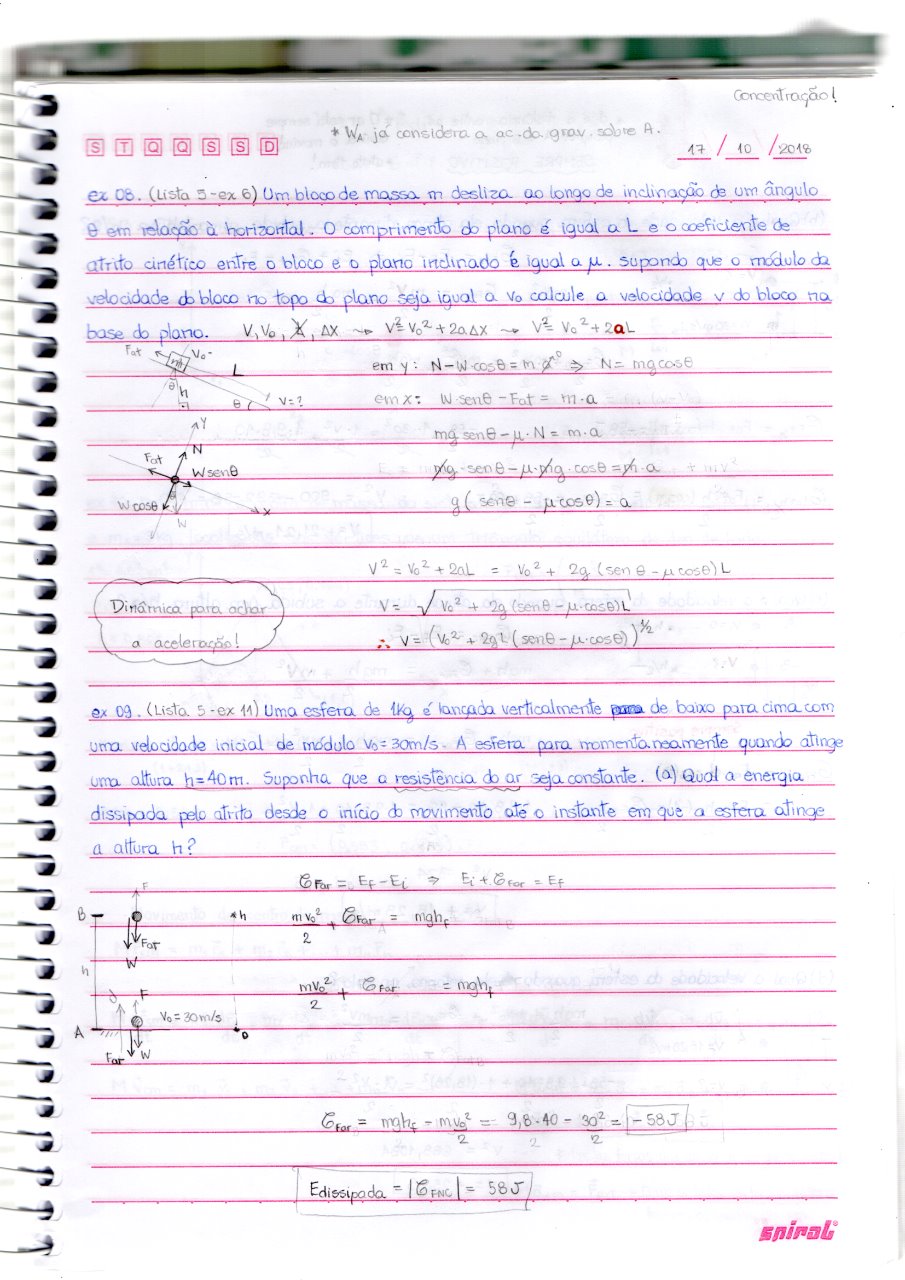 Concentração!
* WA já considera a ac. da grav. sobre A.
S T Q Q S S D
17 / 10 / 2018
ex 08. (Lista 5 - ex 6) Um bloco de massa m desliza ao longo de inclinação de um ângulo
θ em relação à horizontal. O comprimento do plano é igual a L e o coeficiente de
atrito cinético entre o bloco e o plano inclinado é igual a μ. Supondo que o módulo da
velocidade do bloco no topo do plano seja igual a v₀ calcule a velocidade v do bloco na
base do plano. V, V₀, t, ΔX ⇝ V² = V₀² + 2aΔX ⇝ V² = V₀² + 2aL
Fat m V₀
L
θ h
θ V = ?
em y: N - W·cosθ = m·a⁰ ⇒ N = mgcosθ
em x: W senθ - Fat = m·a
mg senθ - μ·N = m·a
mg·senθ - μ·mg·cosθ = m·a
g(senθ - μcosθ) = a
Y
N
Fat
Wsenθ
W cosθ
θ
W
X
V² = V₀² + 2aL = V₀² + 2g (senθ - μcosθ)L
V = √V₀² + 2g(senθ - μ·cosθ)L
∴ V = (V₀² + 2gL(senθ - μ·cosθ))^½
Dinâmica para achar
a aceleração!
ex 09. (Lista 5 - ex 11) Uma esfera de 1Kg é lançada verticalmente para de baixo para cima com
uma velocidade inicial de módulo V₀ = 30m/s. A esfera para momentaneamente quando atinge
uma altura h = 40m. Suponha que a resistência do ar seja constante. (a) Qual a energia
dissipada pelo atrito desde o início do movimento até o instante em que a esfera atinge
a altura h?
𝒞Far = Ef - Ei ⇒ Ei + 𝒞Far = Ef
mv₀²/2 + 𝒞Far = mghf
mv₀²/2 + 𝒞Far = mghf
B
F
Far
W
h
h
F
V₀ = 30m/s
A
Far
W
0
𝒞Far = mghf - mv₀²/2 = 9,8·40 - 30²/2 = -58J
Edissipada = |𝒞FNC| = 58J
spiral®